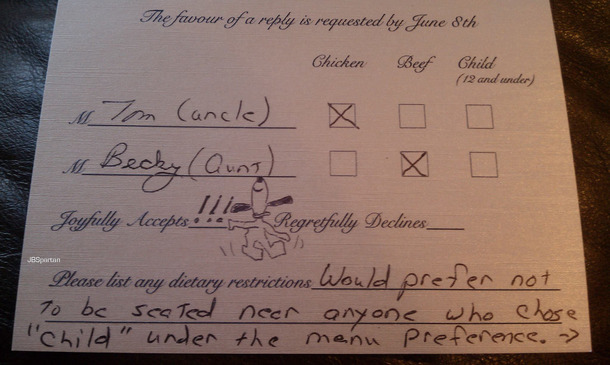 The favour of a reply is requested by June 8th
Chicken Beef Child
(12 and under)
M Tom (uncle)
M Becky (Aunt)
Joyfully Accepts !!! Regretfully Declines
JBSpartan
Please list any dietary restrictions Would prefer not
to be seated near anyone who chose
"child" under the menu preference. ->